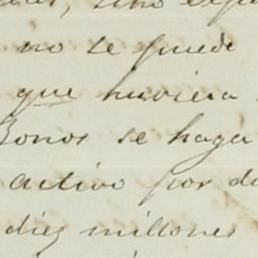 sino
no se puede
que huviera
Bonos se haga
activo por d
diez millones